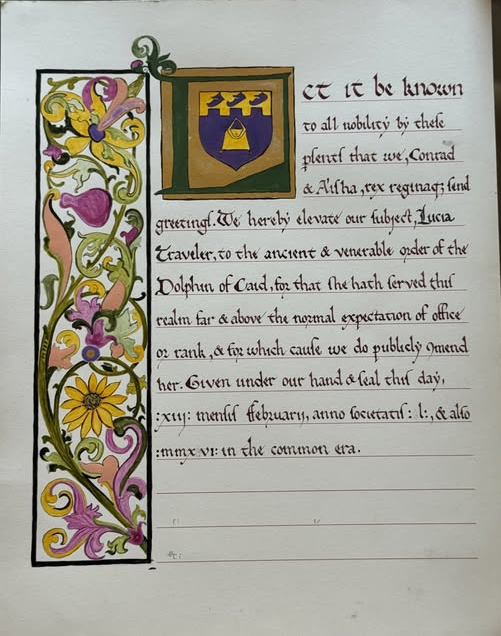 Let it be known
to all nobility by these
presents that we, Conrad
& A'isha, rex reginaq; send
greetings. We hereby elevate our subject, Lucia
Traveler, to the ancient & venerable order of the
Dolphin of Caid, for that she hath served this
realm far & above the normal expectation of office
or rank, & for which cause we do publicly 9mend
her. Given under our hand & seal this day,
:xiij: mensis ffebruarij, anno societatis: l:, & also
:mmxvi: in the common era.